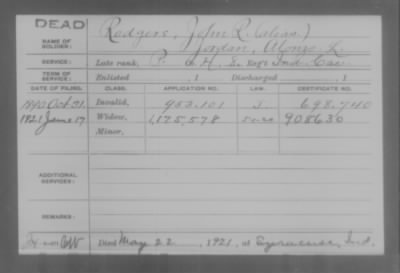 DEAD
NAME OF SOLDIER: Rodgers, John R. (alias)
Jordan, Alonzo L.
SERVICE: Late rank, P. Co. H, 2 Reg't Ind. Cav.
TERM OF SERVICE: Enlisted , 1 Discharged , 1
DATE OF FILING. CLASS. APPLICATION NO. LAW. CERTIFICATE NO.
1890 Oct 31. Invalid, 953.101 J. 698.740
1921 June 17 Widow, 1,175,578 908630
Minor,
ADDITIONAL SERVICES:
REMARKS:
Died May 22, 1921, at Syracuse, Ind.